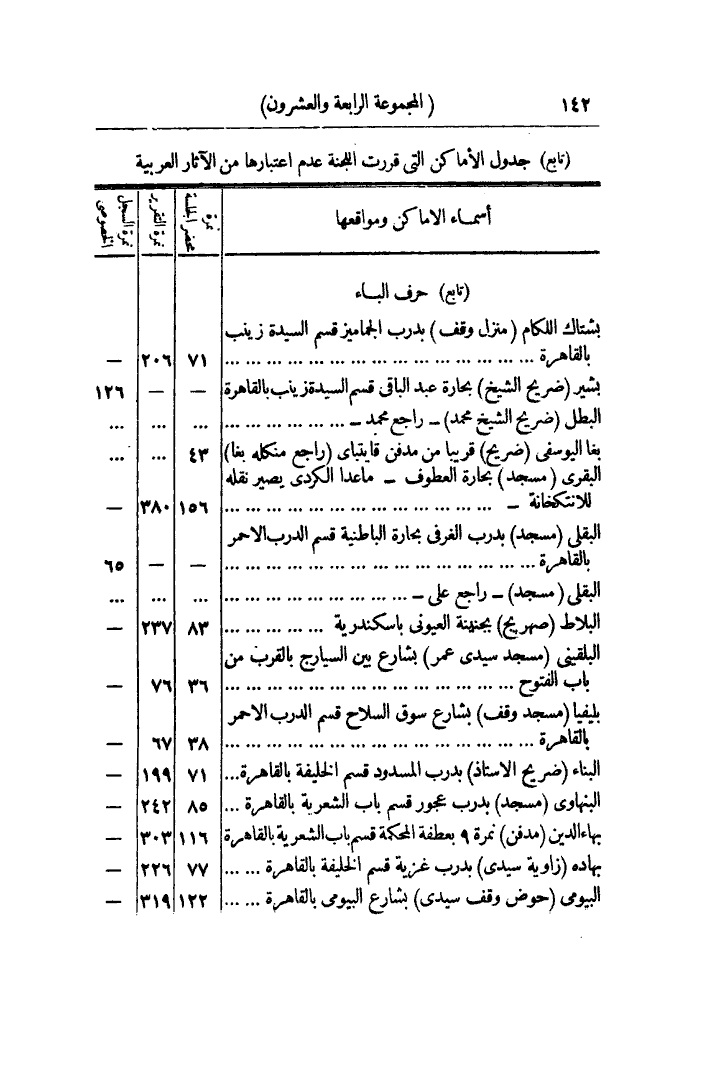 ١٤٢ (المجموعة الرابعة والعشرون)
(تابع) جدول الأماكن التى قررت اللجنة عدم اعتبارها من الآثار العربية
أسماء الاماكن ومواقعها نمرة محضر الجلسة نمرة التقرير نمرة السجل الخصوصى
(تابع) حرف الباء
بشتاك اللكام (منزل وقف) بدرب الجماميز قسم السيدة زينب
بالقاهرة ... ... ... ... ... ... ... ... ... ... ... ... ... ... ... ٧١ ٢٠٦ —
بشير (ضريح الشيخ) بحارة عبد الباقى قسم السيدة زينب بالقاهرة — — ١٢٦
البطل (ضريح الشيخ محمد) — راجع محمد — ... ... ... ... ... ... ... ... ...
بغا اليوسفى (ضريح) قريبا من مدفن قايتباى (راجع منكله بغا) ٤٣ ... ...
البقرى (مسجد) بحارة العطوف — ماعدا الكردى يصير نقله
للانتكخانة — ... ... ... ... ... ... ... ... ... ... ... ... ... ١٥٦ ٣٨٠ —
البقلى (مسجد) بدرب الغرفى بحارة الباطنية قسم الدرب الاحمر
بالقاهرة ... ... ... ... ... ... ... ... ... ... ... ... ... ... ... — — ٦٥
البقلى (مسجد) — راجع على — ... ... ... ... ... ... ... ... ... ... ... ...
البلاط (صهريج) بجنينة العيونى باسكندرية ... ... ... ... ... ٨٣ ٢٣٧ —
البلقينى (مسجد سيدى عمر) بشارع بين السيارج بالقرب من
باب الفتوح ... ... ... ... ... ... ... ... ... ... ... ... ... ... ٣٦ ٧٦ —
بليفيا (مسجد وقف) بشارع سوق السلاح قسم الدرب الاحمر
بالقاهرة ... ... ... ... ... ... ... ... ... ... ... ... ... ... ... ٣٨ ٦٧ —
البناء (ضريح الاستاذ) بدرب المسدود قسم الخليفة بالقاهرة... ٧١ ١٩٩ —
البنهاوى (مسجد) بدرب عجور قسم باب الشعرية بالقاهرة ... ٨٥ ٢٤٢ —
بهاءالدين (مدفن) نمرة ٩ بعطفة المحكمة قسم باب الشعرية بالقاهرة ١١٦ ٣٠٣ —
بهاده (زاوية سيدى) بدرب غزية قسم الخليفة بالقاهرة ... ... ٧٧ ٢٢٦ —
البيومى (حوض وقف سيدى) بشارع البيومى بالقاهرة ... ... ١٢٢ ٣١٩ —